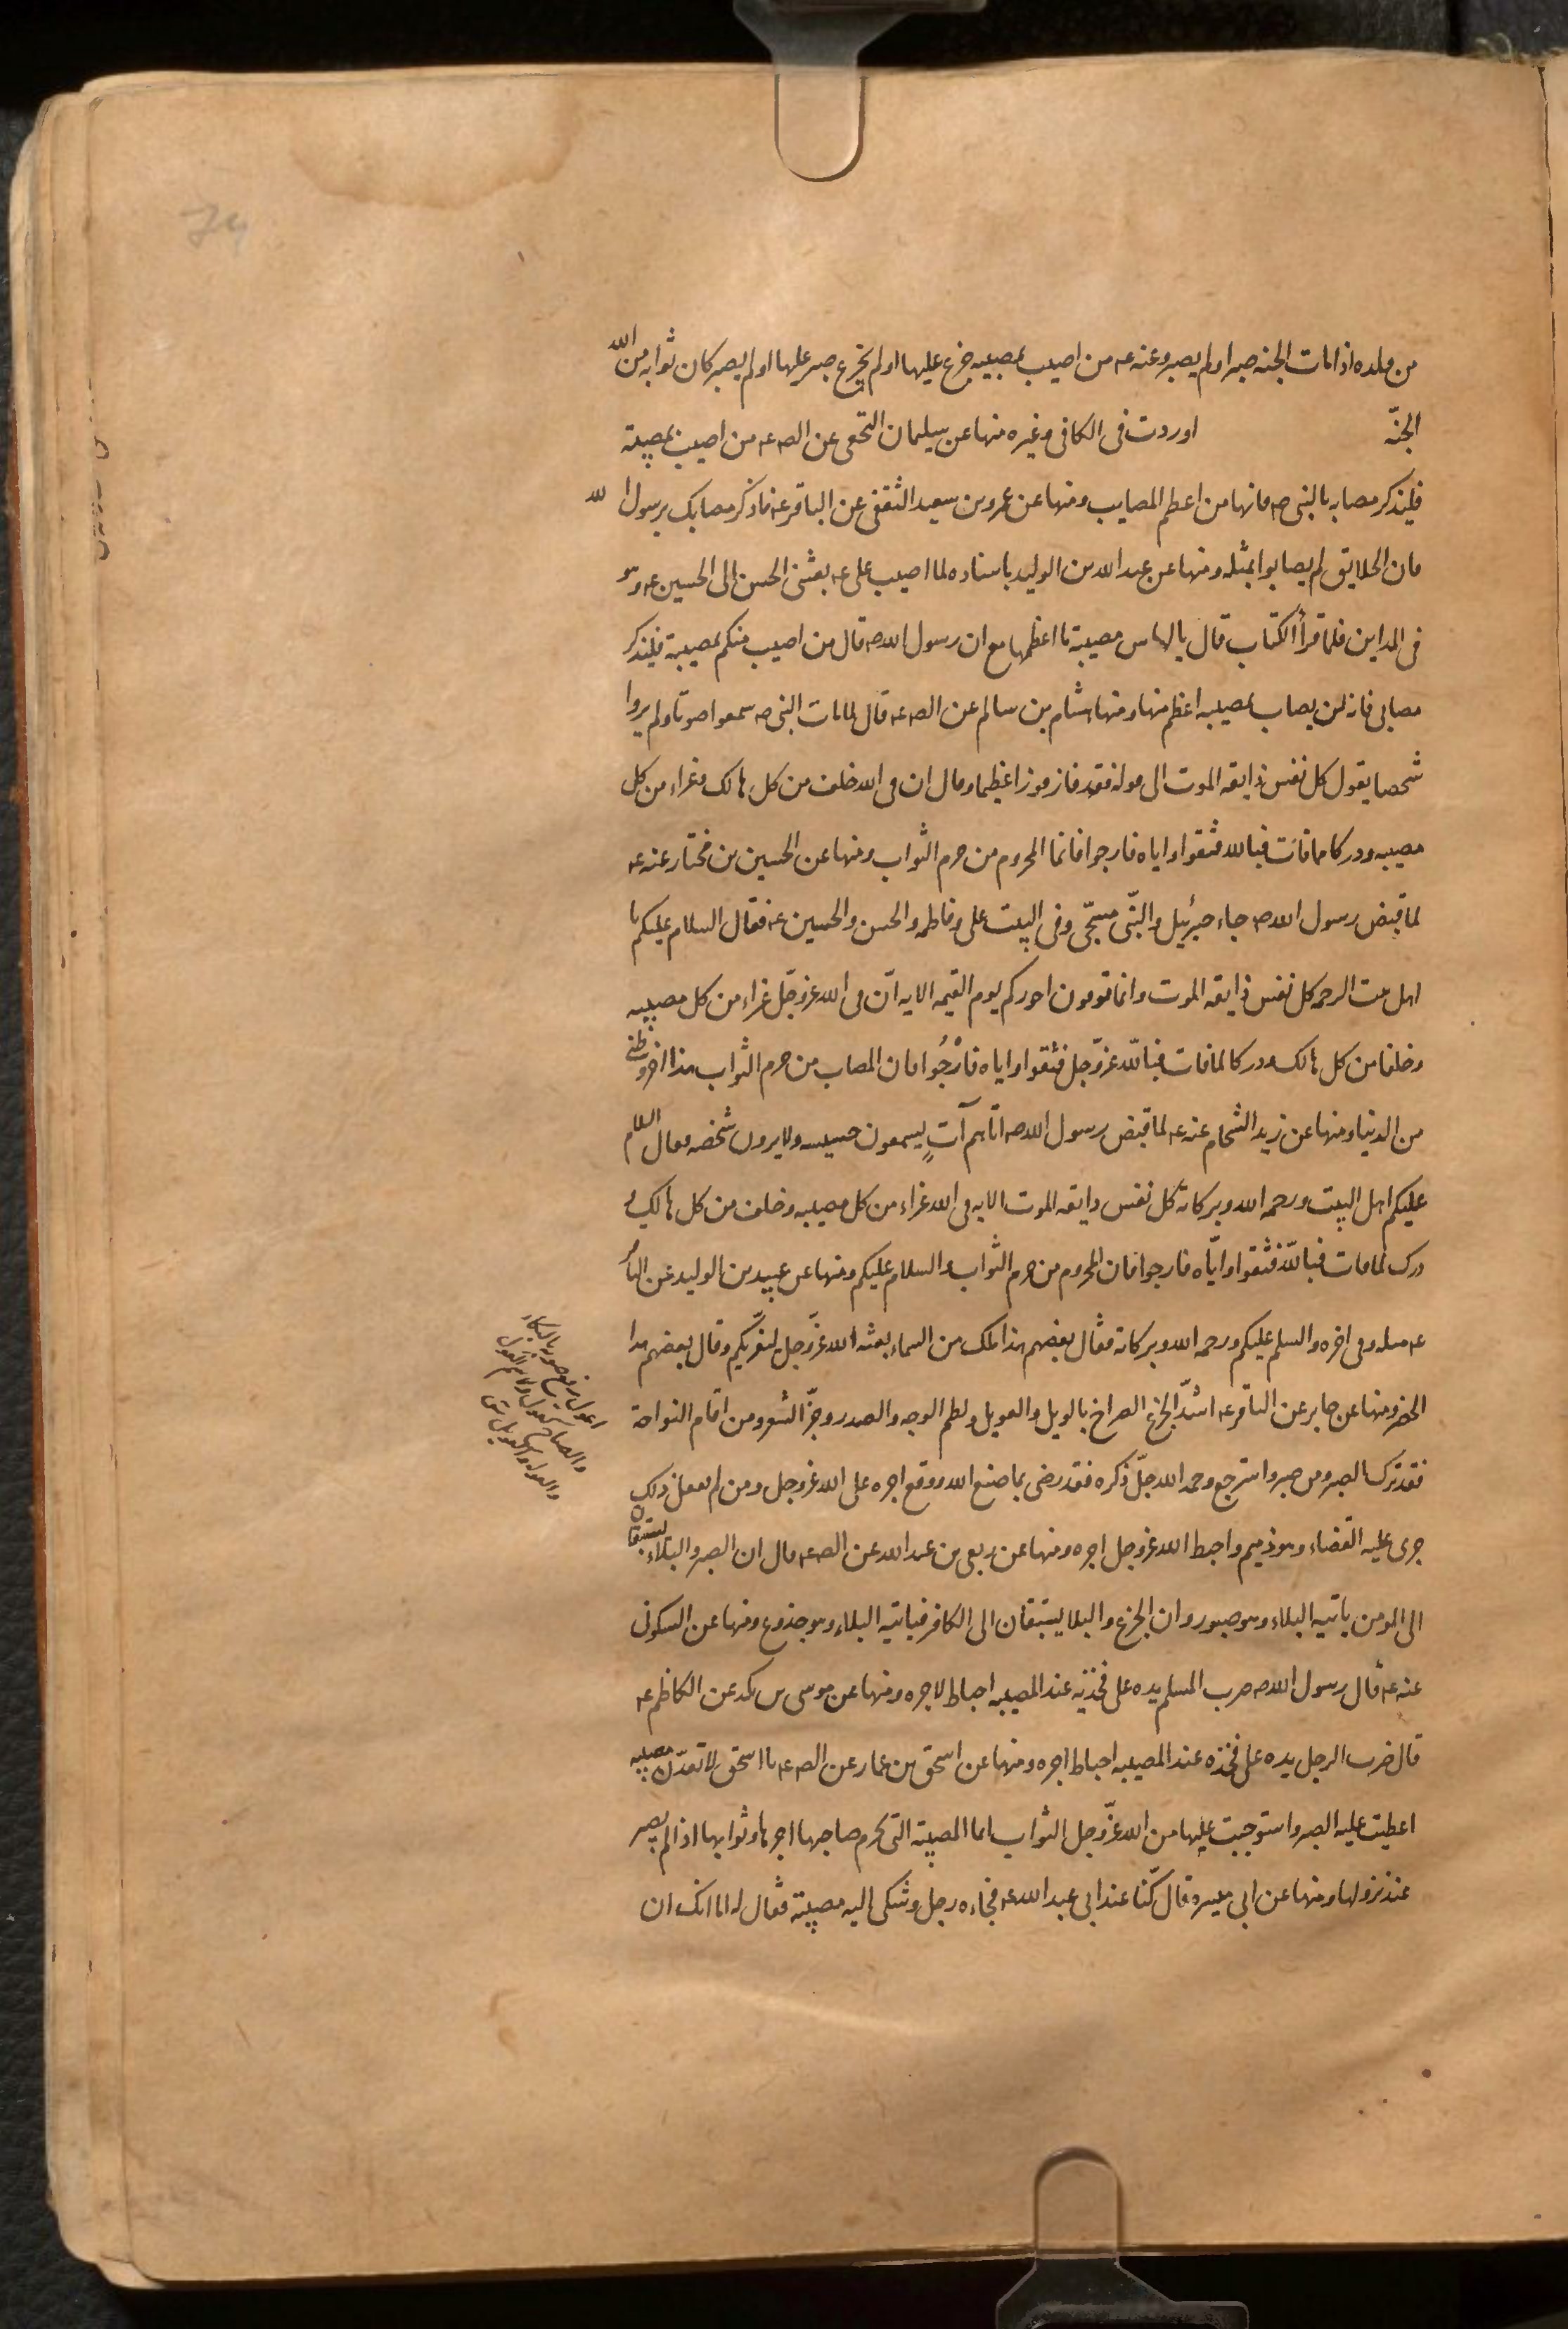 من ولده اذا مات الجنه صبر او لم يصبر وعنه عه من اصيب بمصيبه جزع عليها او لم يجزع صبر عليها او لم يصبر كان ثوابه من الله
الجنّه اوردت فى الكافى وغيره منها عن سليمان النخعى عن الص عه من اصيب بمصيبة
فليذكر مصابه بالنبى صه فانها من اعظم المصايب ومنها عن عمرو بن سعيد الثقفى عن الباقر عه فاذكر مصابك برسول الله
فان الخلايق لم يصابوا بمثله ومنها عن عبد الله بن الوليد باسناده لما اصيب على عه بعثنى الحسن الى الحسين عه وهو
فى المداين فلما قرأ الكتاب قال يا لها من مصيبة ما اعظمها مع ان رسول الله صه قال من اصيب منكم بمصيبة فليذكر
مصابى فانه لن يصاب بمصيبه اعظم منها ومنها هشام بن سالم عن الص عه قال لما مات النبى صه سمعوا صوتا ولم يروا
شخصا يقول كل نفس ذايقه الموت الى قوله فقد فاز فوزا عظيما وقال ان فى الله خلف من كل هالك وعزاء من كل
مصيبه ودركا مما فات فبالله فثقوا واياه فارجوا فانما المحروم من حرم الثواب ومنها عن الحسين بن مختار عنه عه
لما قبض رسول الله صه جاء جبرئيل والنبّى مسجّى وفى البيت على وفاطمه والحسن والحسين عه فقال السلام عليكم يا
اهل بيت الرحمه كل نفس ذايقه الموت وانما توفون اجوركم يوم القيمه الايه انّ فى الله عزوجّل عزاء من كل مصيبه
وخلفا من كل هالك ودركا لما فات فبالله عزّوجل فثقوا واياه فارْجُوا فان المصاب من حرم الثواب هذا اخر وطئى
من الدنيا ومنها عن زيد الشحام عنه عه لما قبض رسول الله صه اتاهم آتٍ يسمعون حسيسه ولا يرون شخصه فقال السلام
عليكم اهل البيت ورحمه الله وبركاته كل نفس ذايقه الموت الايه فى الله عزاء من كل مصيبه وخلف من كل هالك و
درك لما فات فبالله فثقوا وايّاه فارجوا فان المحروم من حرم الثواب والسلام عليكم ومنها عن عبيد بن الوليد عن الباقر
عه مثله وفى اخره والسلم عليكم ورحمه الله وبركاته فقال بعضهم هذا ملك من السماء بعثه الله عزّوجل ليعزّيكم وقال بعضهم هذا
الخضر ومنها عن جابر عن الباقر عه اشدّ الجزع الصراخ بالويل والعويل ولطم الوجه والصدر وجزّ الشعر ومن اقام النواحة
فقد ترك الصبر ومن صبر واسترجع وحمد الله جلّ ذكره فقد رضى بما صنع الله ووقع اجره على الله عزوجل ومن لم يفعل ذلك
جرى عليه القضاء وهو ذميم واحبط الله عزوجل اجره ومنها عن ربعى بن عبد الله عن الص عه قال ان الصبر والبلاء يستبقان
الى المومن ياتيه البلاء وهو صبور وان الجزع والبلا يستبقان الى الكافر فياتيه البلاء وهو جزوع ومنها عن السكونى
عنه عه قال رسول الله صه ضرب المسلم يده على فخذيه عند المصيبه احباط لاجره ومنها عن موسى بن بكر عن الكاظم عه
قال ضرب الرجل يده على فخذه عند المصيبه احباط اجره ومنها عن اسحق بن عمار عن الص عه يا اسحق لا تعدّن مصيبه
اعطيت عليه الصبر واستوجبت عليها من الله عزّوجل الثواب انما المصيبة التى يحرم صاحبها اجرها وثوابها اذا لم يصبر
عند نزولها ومنها عن ابى ميسره قال كنّا عند ابى عبد الله عه فجاءه رجل وشكى اليه مصيبة فقال له اما انك ان
اعول رفع صوته بالبكاء